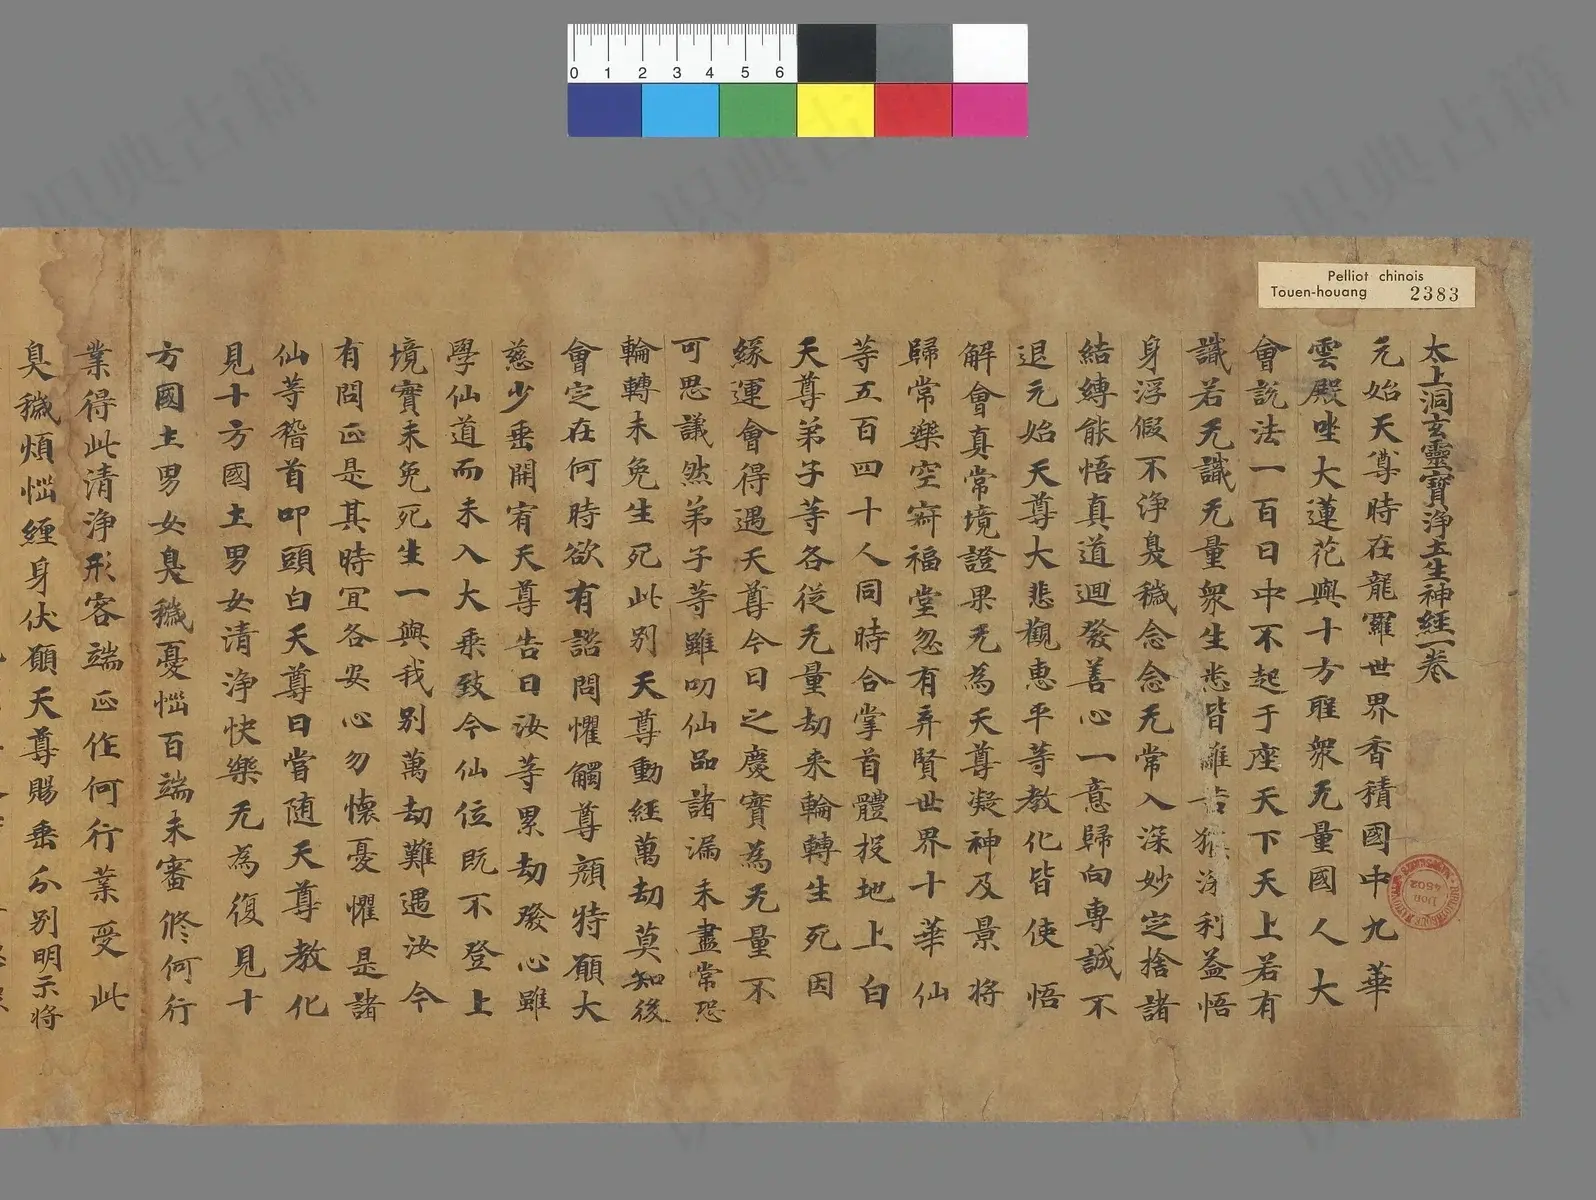 Pelliot chinois
Touen-houang 2383
太上洞玄靈寶淨土生神經一卷
元始天尊時在龍羅世界香積國中九華
雲殿坐大蓮花與十方聖衆无量國人大
會說法一百日中不起于座天下天上若有
識若无識无量衆生悉皆離苦 利益悟
身浮假不淨臭穢念念无常入深妙定捨諸
結縛能悟真道迴發善心一意歸向專誠不
退元始天尊大悲觀惠平等教化皆使悟
解會真常境證果无為天尊凝神及景將
歸常樂空寂福堂忽有弃賢世界十華仙
等五百四十人同時合掌首體投地上白
天尊弟子等各從无量劫来輪轉生死因
緣運會得遇天尊今日之慶實為无量不
可思議然弟子等雖叨仙品諸漏未盡常恐
輪轉未免生死此別天尊動經萬劫莫知後
會定在何時欲有諮問懼觸尊顏特願大
慈少垂開宥天尊告曰汝等累劫發心雖
學仙道而未入大乘致今仙位既不登上
境實未免死生一與我別萬劫難遇汝今
有問正是其時宜各安心勿懷憂懼是諸
仙等稽首叩頭白天尊曰當随天尊教化
見十方國土男女清淨快樂无為復見十
方國土男女臭穢憂惱百端未審修何行
業得此清淨形容端正作何行業受此
臭穢煩惱纏身伏願天尊賜垂分別明示將